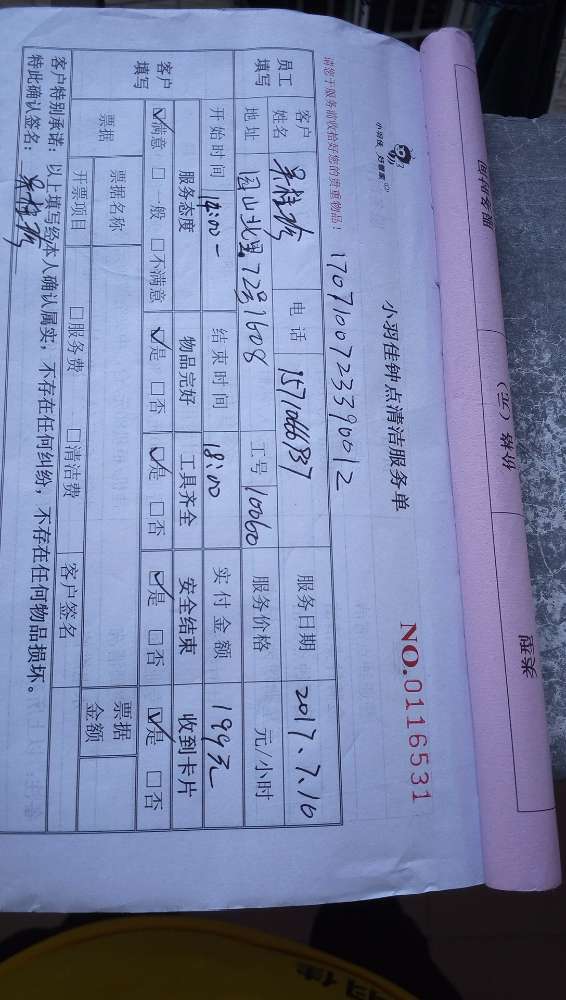 小羽佳钟点清洁服务单
NO.0116531
小羽佳，好管家
请您于服务前收拾好您的贵重物品！
1707100723390012
员工填写 客户姓名 电话 服务日期 2017.7.10
地址 园山北里72号1608 工号 10060 服务价格 元/小时
开始时间 14:00- 结束时间 18:00 实付金额 199元
客户填写 服务态度 物品完好 工具齐全 安全结束 收到卡片
☑满意 □一般 □不满意 ☑是 □否 ☑是 □否 ☑是 □否 ☑是 □否
票据 票据名称 票据金额
开票项目 □服务费 □清洁费 客户签名
客户特别承诺：以上填写经本人确认属实，不存在任何纠纷，不存在任何物品损坏。
特此确认签名：